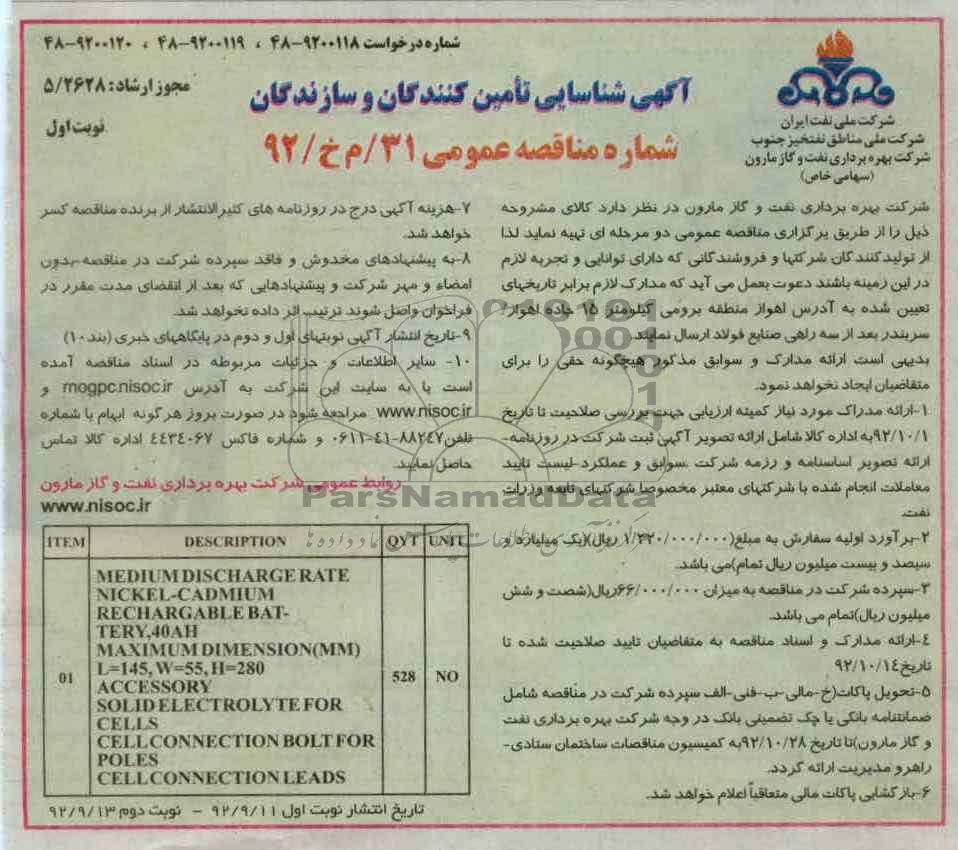 شماره درخواست ۹۲۰۰۱۱۸-۴۸ ، ۹۲۰۰۱۱۹-۴۸ ، ۹۲۰۰۱۲۰-۴۸
مجوز ارشاد: ۵/۲۶۲۸
نوبت اول
آگهی شناسایی تأمین کنندگان و سازندگان
شماره مناقصه عمومی ۳۱/م خ/۹۲
شرکت ملی نفت ایران
شرکت ملی مناطق نفتخیز جنوب
شرکت بهره برداری نفت و گاز مارون
(سهامی خاص)
شرکت بهره برداری نفت و گاز مارون در نظر دارد کالای مشروحه
ذیل را از طریق برگزاری مناقصه عمومی دو مرحله ای تهیه نماید لذا
از تولیدکنندگان شرکتها و فروشندگانی که دارای توانایی و تجربه لازم
در این زمینه باشند دعوت بعمل می آید که مدارک لازم برابر تاریخهای
تعیین شده به آدرس اهواز منطقه برومی کیلومتر ۱۵ جاده اهواز/
سربندر بعد از سه راهی صنایع فولاد ارسال نمایند.
بدیهی است ارائه مدارک و سوابق مذکور هیچگونه حقی را برای
متقاضیان ایجاد نخواهد نمود.
۱-ارائه مدراک مورد نیاز کمیته ارزیابی جهت بررسی صلاحیت تا تاریخ
۹۲/۱۰/۱به اداره کالا شامل ارائه تصویر آگهی ثبت شرکت در روزنامه-
ارائه تصویر اساسنامه و رزمه شرکت .سوابق و عملکرد-لیست تایید
معاملات انجام شده با شرکتهای معتبر مخصوصا شرکتهای تابعه وزرات
نفت.
۲-برآورد اولیه سفارش به مبلغ(۱/۳۲۰/۰۰۰/۰۰۰ ریال)(یک میلیارد و
سیصد و بیست میلیون ریال تمام)می باشد.
۳-سپرده شرکت در مناقصه به میزان ۶۶/۰۰۰/۰۰۰ریال(شصت و شش
میلیون ریال)تمام می باشد.
۴-ارائه مدارک و اسناد مناقصه به متقاضیان تایید صلاحیت شده تا
تاریخ۹۲/۱۰/۱۴
۵-تحویل پاکات(خ-مالی-ب-فنی-الف سپرده شرکت در مناقصه شامل
ضمانتنامه بانکی یا چک تضمینی بانک در وجه شرکت بهره برداری نفت
و گاز مارون)تا تاریخ ۹۲/۱۰/۲۸به کمیسیون مناقصات ساختمان ستادی-
راهرو مدیریت ارائه گردد.
۶-بازگشایی پاکات مالی متعاقباً اعلام خواهد شد.
۷-هزینه آگهی درج در روزنامه های کثیرالانتشار از برنده مناقصه کسر
خواهد شد.
۸-به پیشنهادهای مخدوش و فاقد سپرده شرکت در مناقصه-بدون
امضاء و مهر شرکت و پیشنهادهایی که بعد از انقضای مدت مقرر در
فراخوان واصل شوند ترتیب اثر داده نخواهد شد.
۹-تاریخ انتشار آگهی نوبتهای اول و دوم در پایگاههای خبری (بند۱۰)
۱۰- سایر اطلاعات و جزئیات مربوطه در اسناد مناقصه آمده
است یا به سایت این شرکت به آدرس mogpc.nisoc.ir و
www.nisoc.ir مراجعه شود در صورت بروز هر گونه ابهام با شماره
تلفن۸۸۲۴۷-۴۱-۰۶۱۱ و شماره فاکس ۴۴۳۴۰۶۷ اداره کالا تماس
حاصل نمایید.
روابط عمومی شرکت بهره برداری نفت و گاز مارون
www.nisoc.ir
ParsNamadData
ITEM DESCRIPTION QYT UNIT
01 MEDIUM DISCHARGE RATE
NICKEL-CADMIUM
RECHARGABLE BAT-
TERY,40AH
MAXIMUM DIMENSION(MM)
L=145, W=55, H=280
ACCESSORY
SOLID ELECTROLYTE FOR
CELLS
CELL CONNECTION BOLT FOR
POLES
CELL CONNECTION LEADS
528 NO
تاریخ انتشار نوبت اول ۹۲/۹/۱۱ - نوبت دوم ۹۲/۹/۱۳